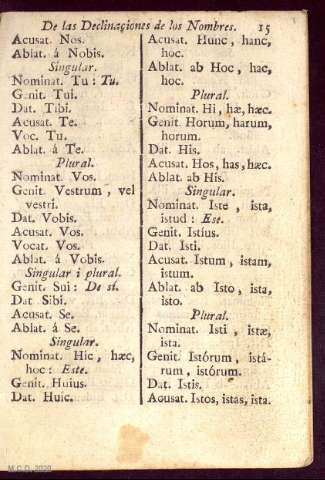 De las Declinaçiones de los Nombres. 15
Acusat. Nos.
Ablat. á Nobis.
Singular.
Nominat. Tu : Tu.
Genit. Tui.
Dat. Tibi.
Acusat. Te.
Voc. Tu.
Ablat. á Te.
Plural.
Nominat. Vos.
Genit. Vestrum, vel
vestri.
Dat. Vobis.
Acusat. Vos.
Vocat. Vos.
Ablat. á Vobis.
Singular i plural.
Genit. Sui : De sí.
Dat Sibi.
Acusat. Se.
Ablat. á Se.
Singular.
Nominat. Hic, hæc,
hoc : Este.
Genit. Huius.
Dat. Huic.
Acusat. Hunc, hanc,
hoc.
Ablat. ab Hoc, hac,
hoc.
Plural.
Nominat. Hi, hæ, hæc.
Genit Horum, harum,
horum.
Dat. His.
Acusat. Hos, has, hæc.
Ablat. ab His.
Singular.
Nominat. Iste, ista,
istud : Ese.
Genit. Istíus.
Dat. Isti.
Acusat. Istum, istam,
istum.
Ablat. ab Isto, ista,
isto.
Plural.
Nominat. Isti, istæ,
ista.
Genit. Istórum, istá-
rum, istórum.
Dat. Istis.
Acusat. Istos, istas, ista.
M.C.D. 2020